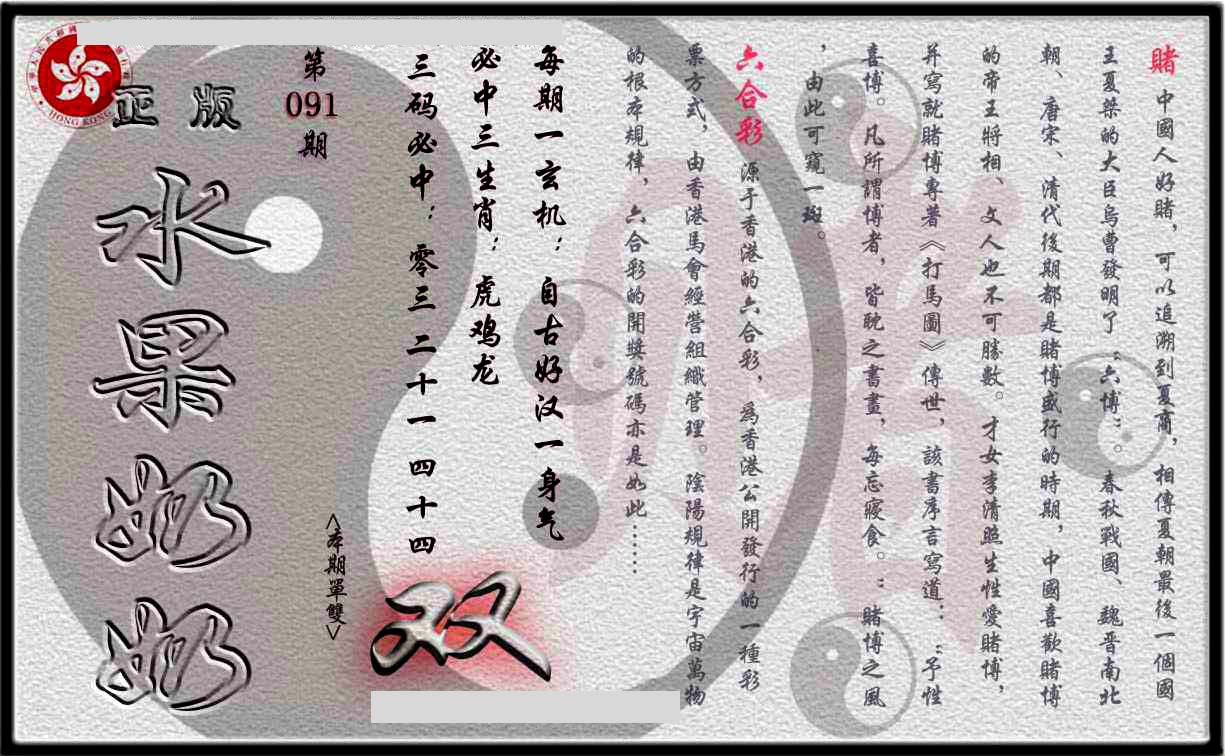 賭 中國人好賭，可以追溯到夏商，相傳夏朝最後一個國
王夏桀的大臣烏曹發明了“六博”。春秋戰國、魏晋南北
朝、唐宋、清代後期都是賭博盛行的時期，中國喜歡賭博
的帝王將相、文人也不可勝數。才女李清照生性愛賭博，
并寫就賭博專著《打馬圖》傳世，該書序言寫道：“予性
喜博。凡所謂博者，皆耽之書畫，每忘寢食。”賭博之風
，由此可窺一斑。
六合彩 源于香港的六合彩，為香港公開發行的一種彩
票方式，由香港馬會經營組織管理。陰陽規律是宇宙萬物
的根本規律，六合彩的開獎號碼亦是如此……
每期一玄机：自古好汉一身气
必中三生肖：虎鸡龙
三码必中：零三 二十一 四十四
<本期單雙>
双
第
091
期
正版
水果奶奶
HONG KONG